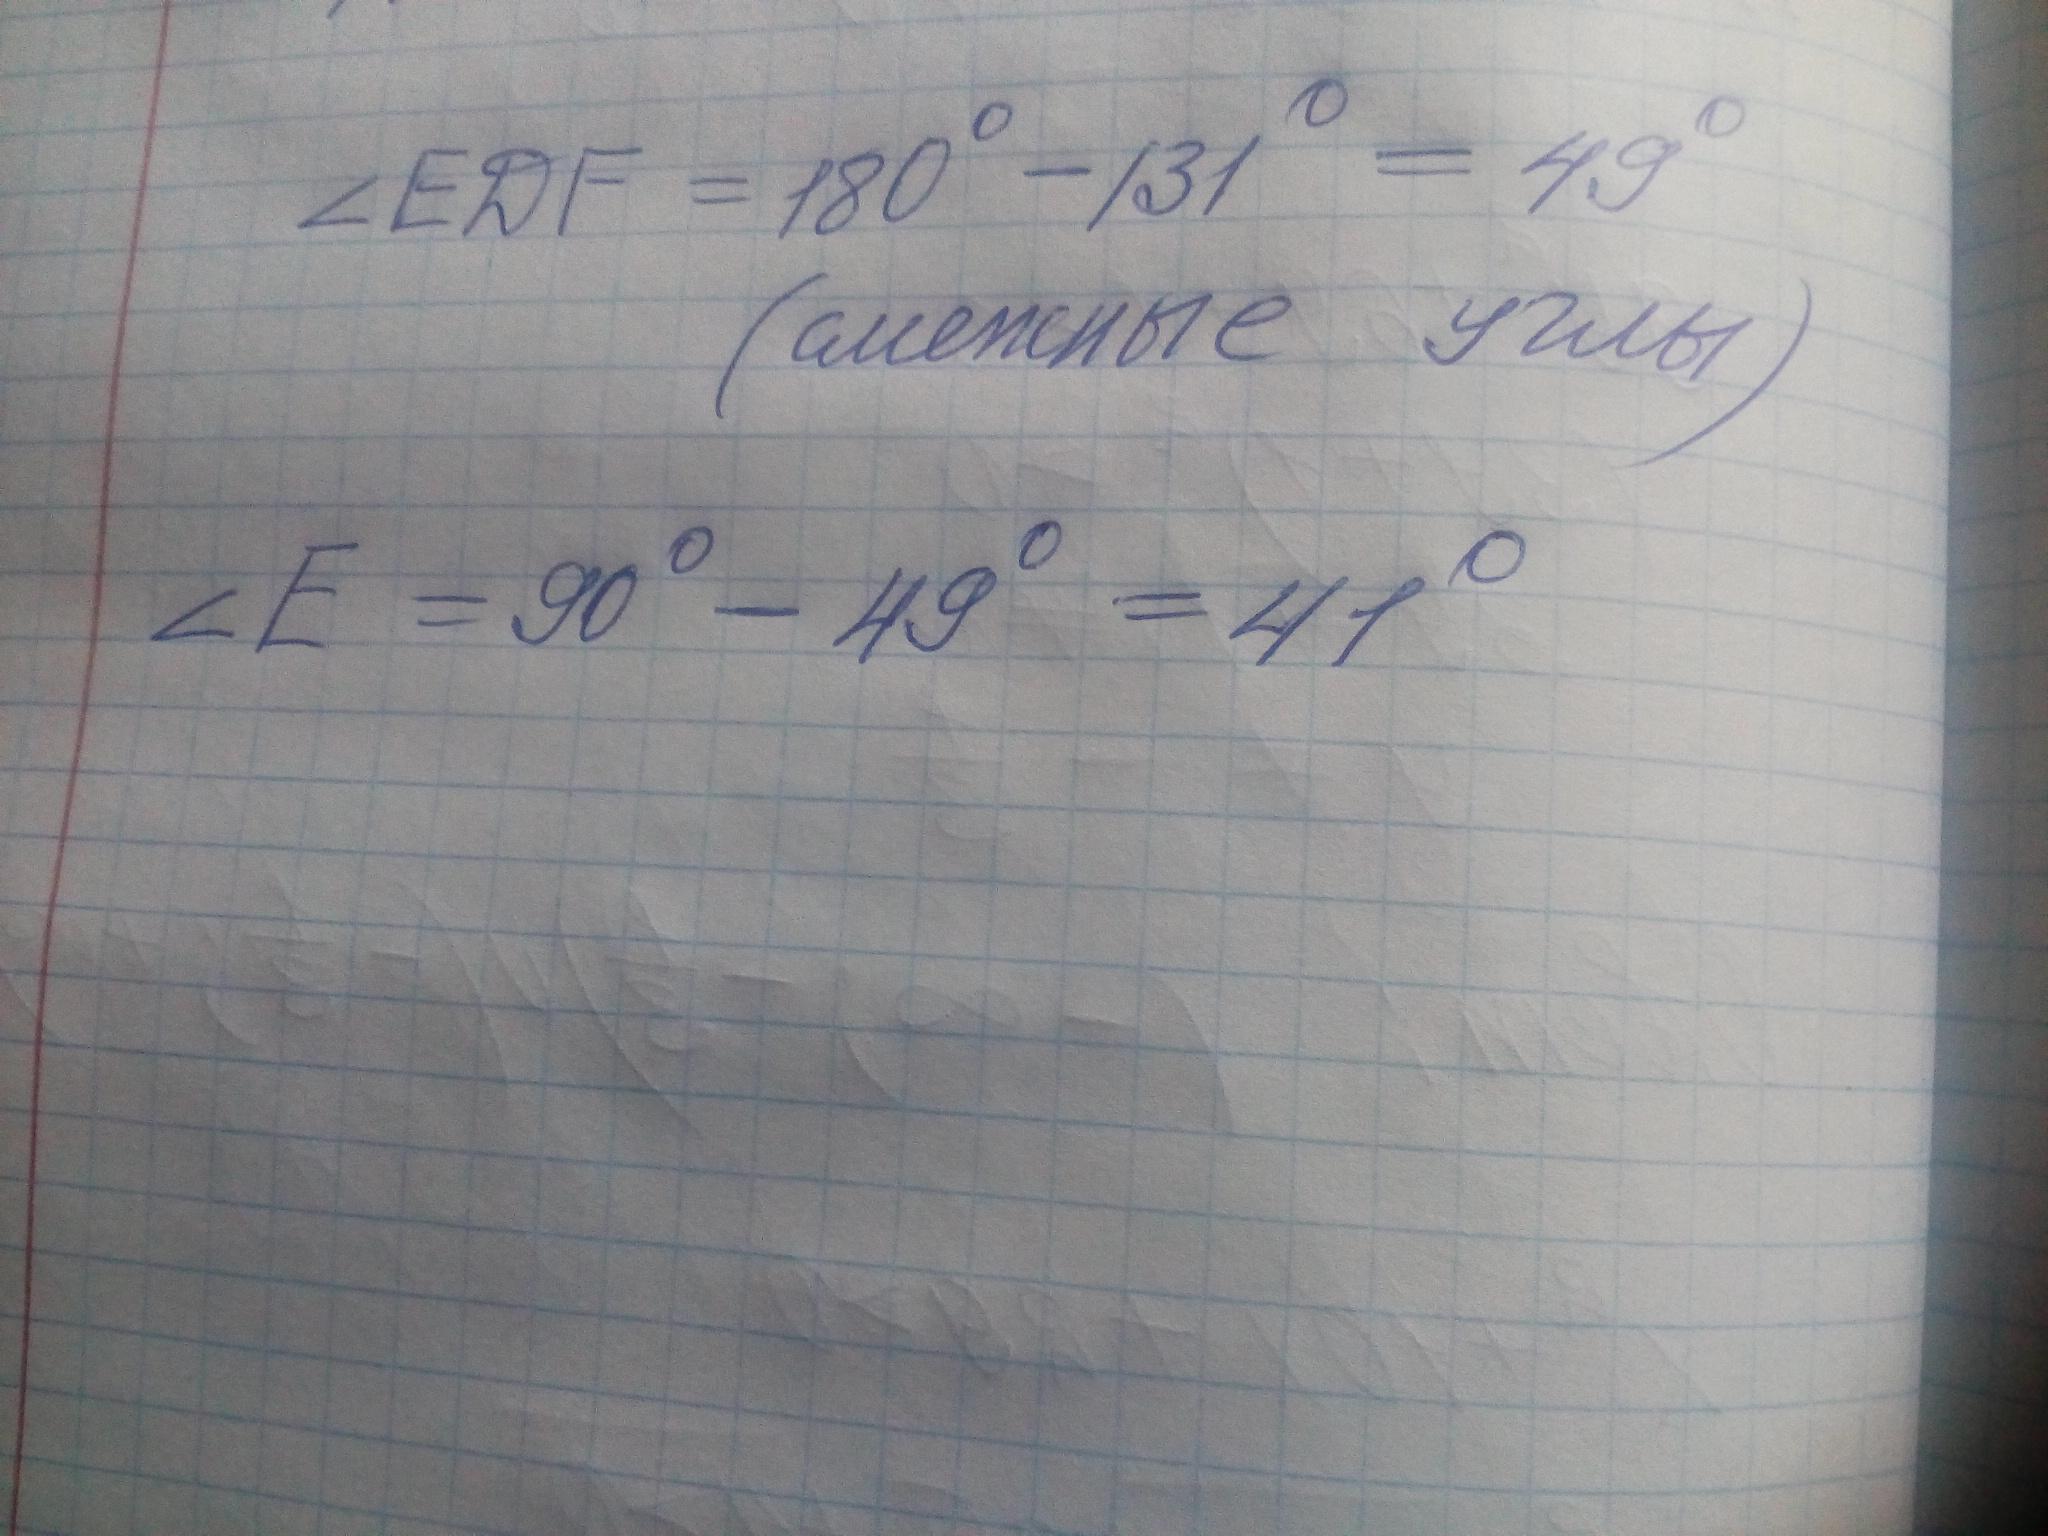 ∠EDF = 180° - 131° = 49°
(смежные углы)
∠E = 90° - 49° = 41°